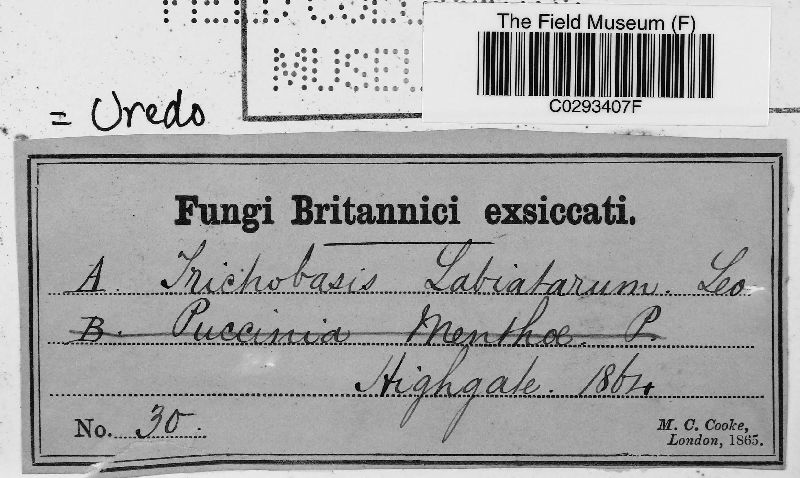 The Field Museum (F)
MUSEU
C0293407F
= Uredo
Fungi Britannici exsiccati.
A. Trichobasis Labiatarum. Leo
B. Puccinia Menthæ. P.
Highgate. 1864
No. 30.
M. C. Cooke,
London, 1865.